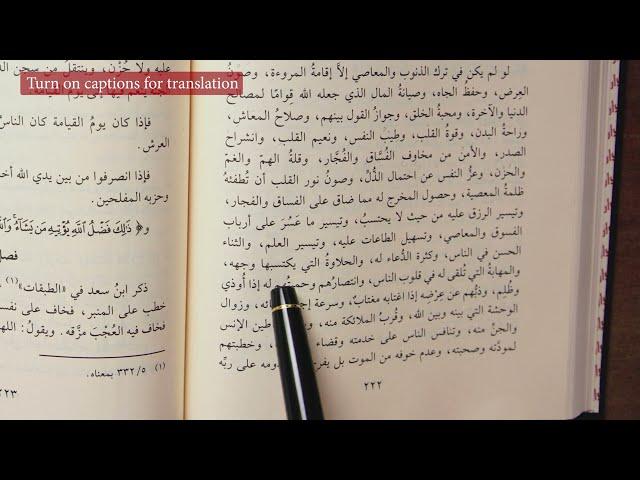 Turn on captions for translation
لو لم يكن في ترك الذنوب والمعاصي إلَّا إقامةُ المروءة، وصونُ
العِرض، وحفظُ الجاه، وصيانةُ المال الذي جعله الله قِوامًا لمصالح
الدنيا والآخرة، ومحبةُ الخلق، وجوازُ القول بينهم، وصلاحُ المعاش،
وراحةُ البدن، وقوةُ القلب، وطِيبُ النفس، ونعيم القلب، وانشراحُ
الصدر، والأمنُ من مخاوف الفُسَّاق والفُجَّار، وقلةُ الهمّ والغمّ
والحزن، وعزُّ النفس عن احتمال الذُّلِّ، وصونُ نور القلب أن تُطفئه
ظلمةُ المعصية، وحصول المخرج له مما ضاق على الفساق والفجار،
وتيسير الرزق عليه من حيث لا يحتسبُ، وتيسير ما عَسُرَ على أرباب
الفسوق والمعاصي، وتسهيل الطاعات عليه، وتيسير العلم، والثناء
الحسن في الناس، وكثرة الدُّعاء له، والحلاوةُ التي يكتسبها وجهه،
والمهابةُ التي تُلقى له في قلوب الناس، وانتصارُهم وحميتُهم له إذا أُوذي
وظُلِم، وذبُّهم عن عِرْضِه إذا اغتابه مغتابٌ، وسرعة ، وزوال
الوحشة التي بينه وبين الله، وقُربُ الملائكة منه، الإنس
والجنّ منه، وتنافس الناس على خدمته وقضاء ، وخطبتهم
لمودَّته وصحبته، وعدم خوفه من الموت بل على ربِّه
٢٢٢
عليه ولا حُزْن، وينتقل من سجن
فإذا كان يومُ القيامة كان الناسُ
العرش.
فإذا انصرفوا من بين يدي الله
وحزبه المفلحين.
و﴿ ذَلِكَ فَضْلُ ٱللَّهِ يُؤْتِيهِ مَن يَشَآءُ
ذكر ابنُ سعد في «الطبقات»(١)
خطب على المنبر، فخاف على
فخاف فيه العُجْبَ مزَّقه. ويقولُ:
(١) ٣٣٢/٥ بمعناه.
٢٢٣